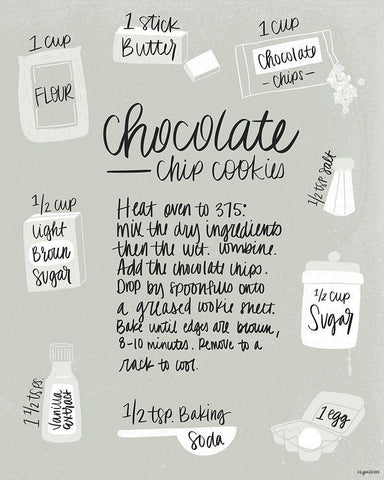 1 cup
FLOUR
1 stick
Butter
1 cup
Chocolate
-chips-
Chocolate
— chip cookies
1/2 tsp salt
1/2 cup
light
Brown
Sugar
Heat oven to 375°
mix the dry ingredients
then the wet. combine.
Add the chocolate chips.
Drop by spoonfuls onto
a greased cookie sheet.
Bake until edges are brown,
8-10 minutes. Remove to a
rack to cool.
1/2 cup
Sugar
1 1/2 tsps
Vanilla
extract
1/2 tsp. Baking
Soda
1 egg